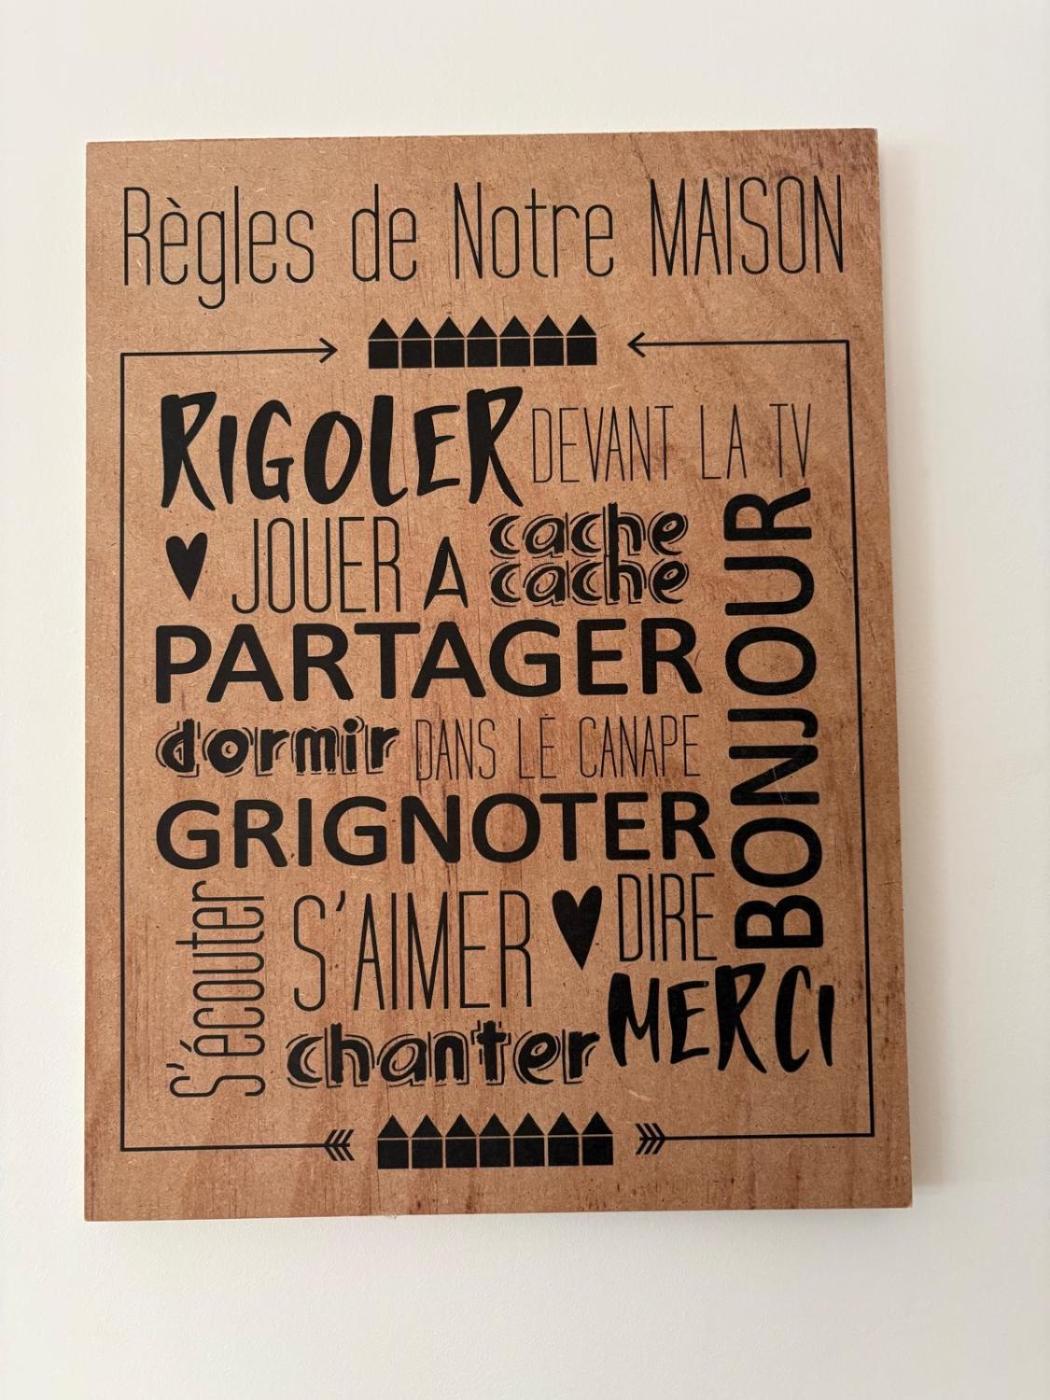 Règles de Notre MAISON
RIGOLER DEVANT LA TV
JOUER A cache cache
PARTAGER
dormir DANS LE CANAPE
GRIGNOTER
BONJOUR
S'écouter
S'AIMER DIRE
chanter MERCI